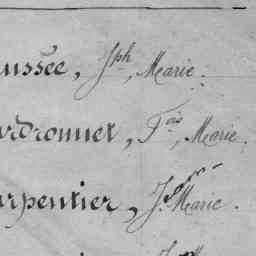 ussée, Jph, Marie.
ardronnet, Fois, Marie.
arpentier, J. Marie.